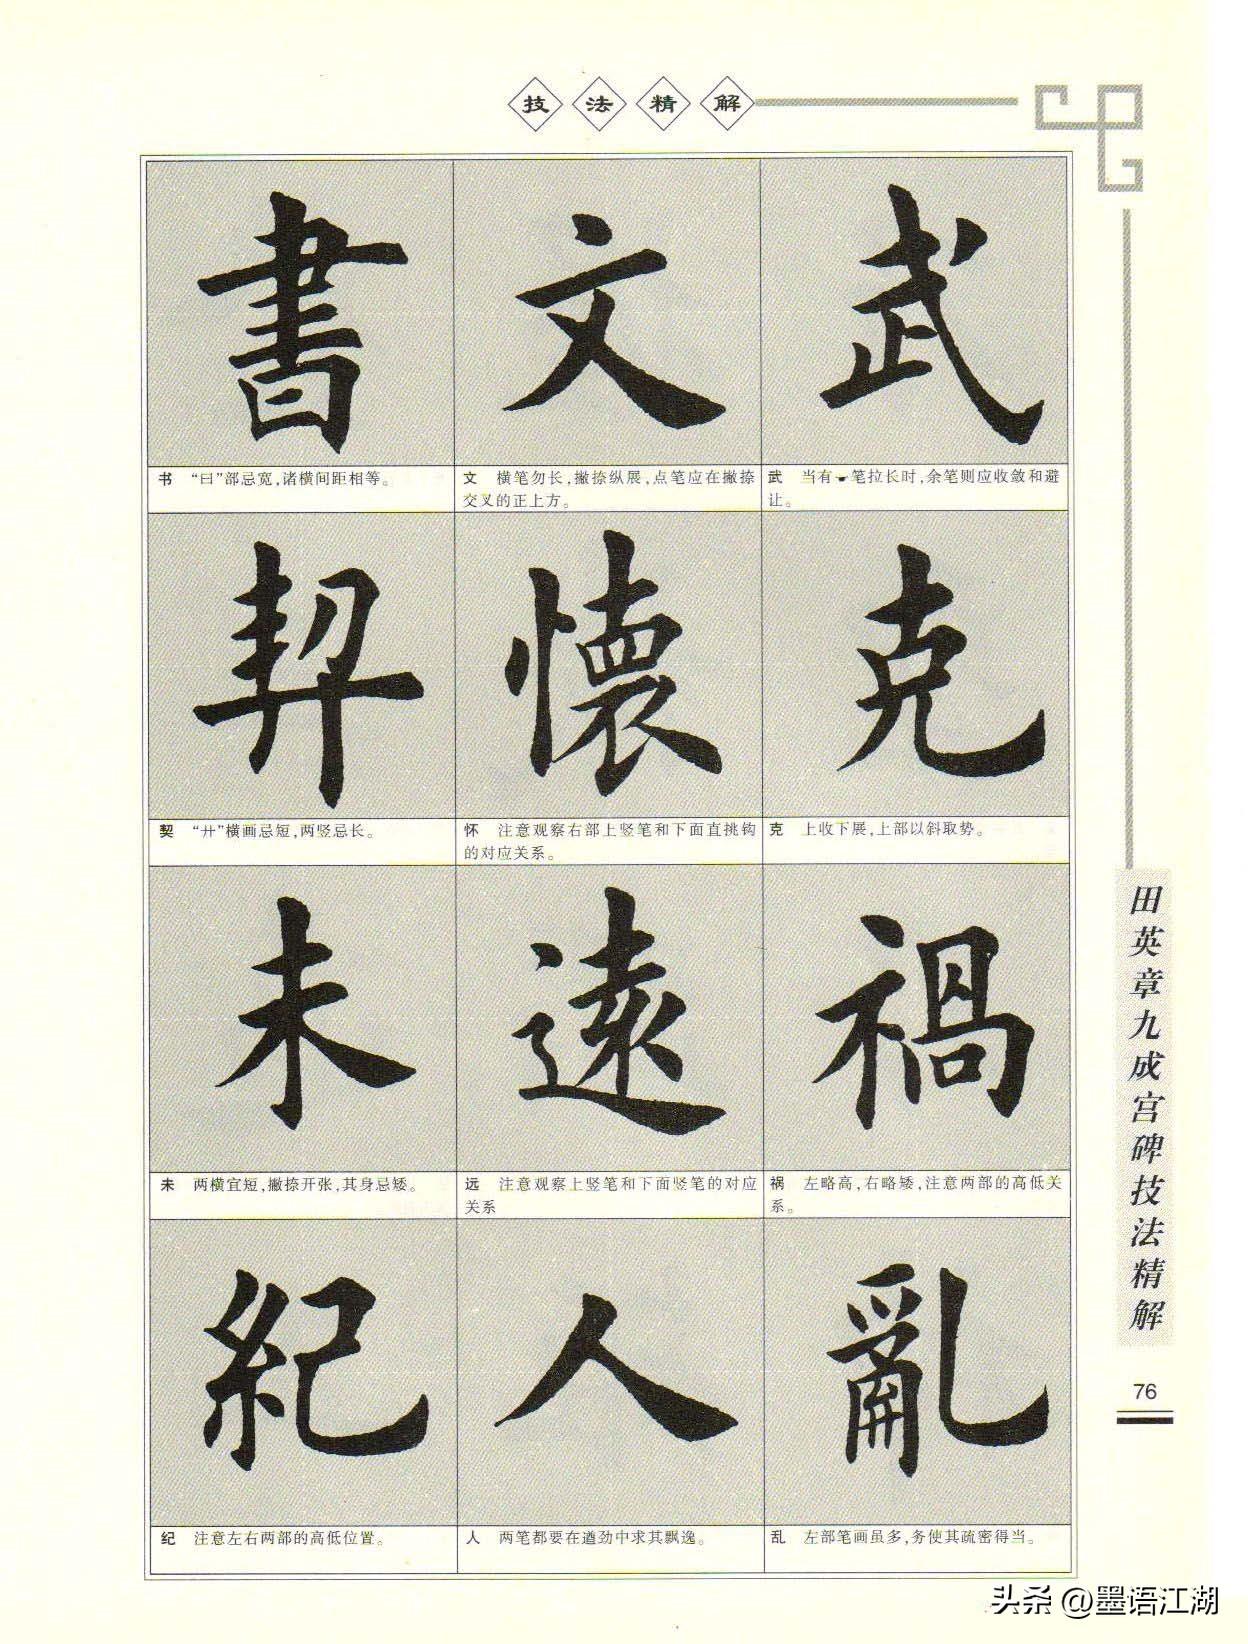 技法精解
書
文
武
书 “曰”部忌宽,诸横间距相等。
文 横笔勿长,撇捺纵展,点笔应在撇捺
交叉的正上方。
武 当有一笔拉长时,余笔则应收敛和避
让。
契
懷
克
契 “廾”横画忌短,两竖忌长。
怀 注意观察右部上竖笔和下面直挑钩
的对应关系。
克 上收下展,上部以斜取势。
未
遠
禍
未 两横宜短,撇捺开张,其身忌矮。
远 注意观察上竖笔和下面竖笔的对应
关系
祸 左略高,右略矮,注意两部的高低关
系。
紀
人
亂
纪 注意左右两部的高低位置。
人 两笔都要在遒劲中求其飘逸。
乱 左部笔画虽多,务使其疏密得当。
田英章九成宫碑技法精解
76
头条 @墨语江湖